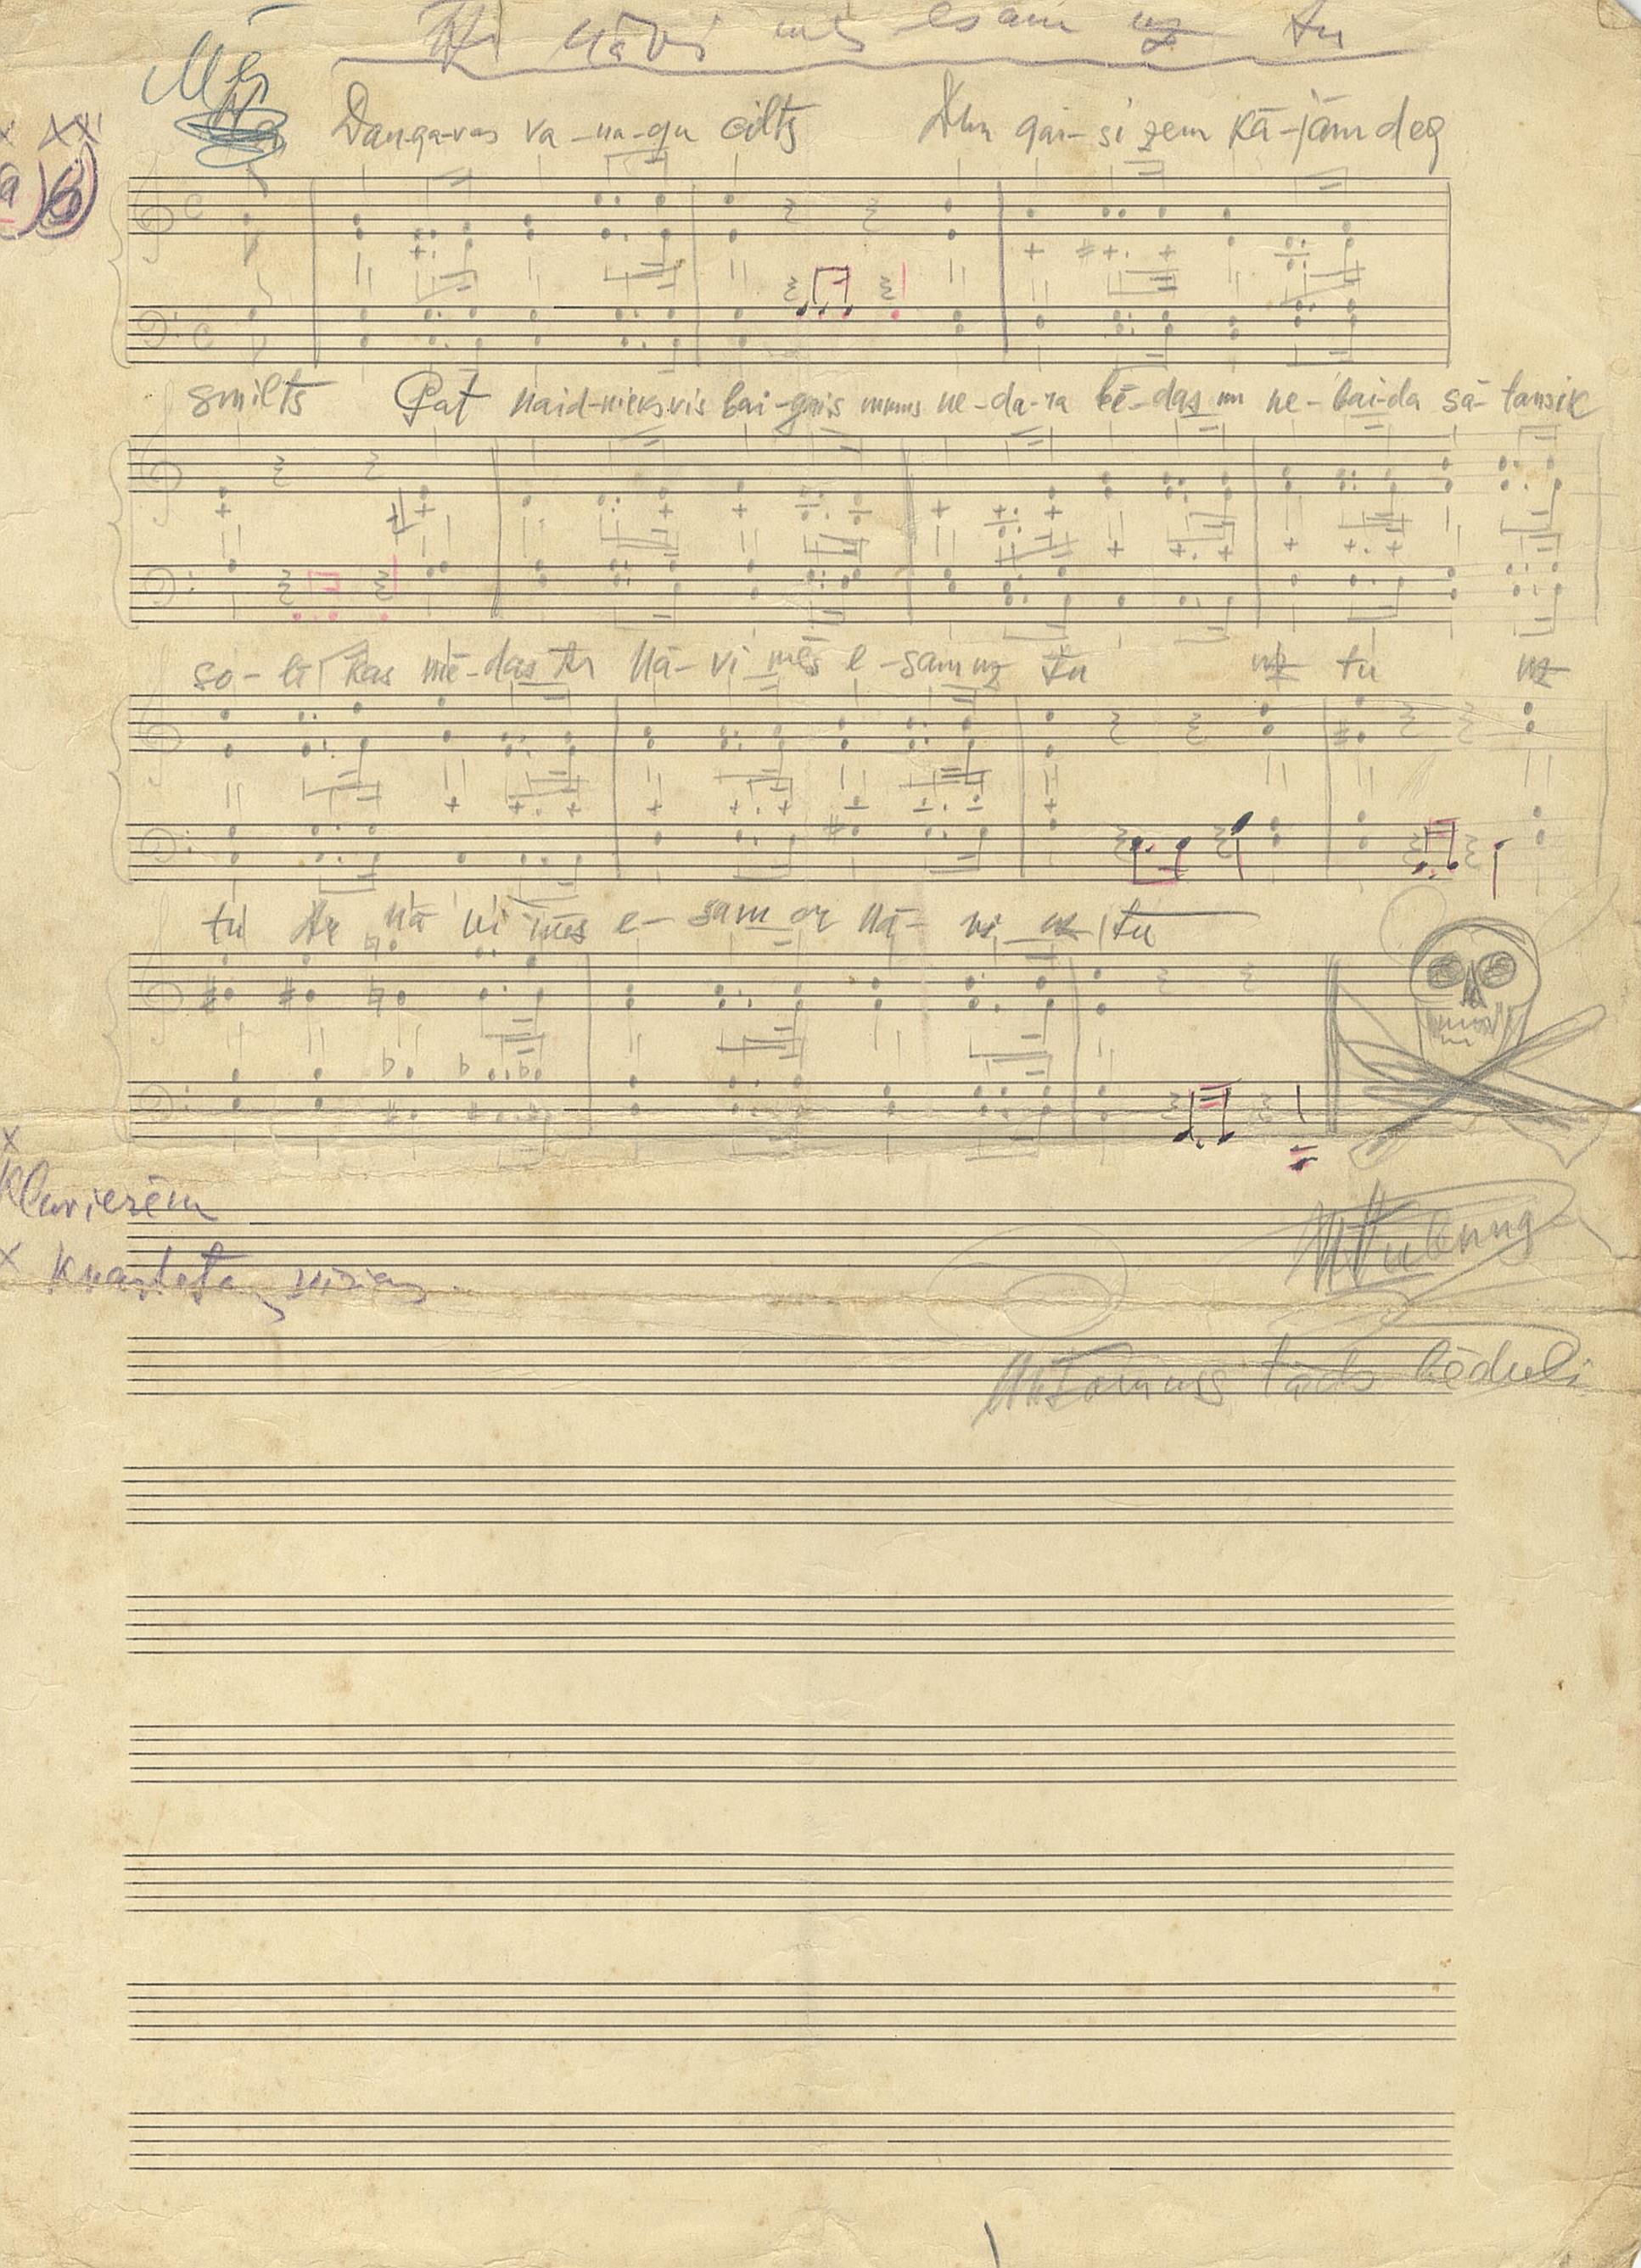 Ar nāvi mēs esam uz tu
Mēs
Daugavas va-na-gu cilts Dun gai-si zem kā-jām deg
a) 6)
smilts Pat naid-nieks vis bai-gais mums ne-da-ra bē-das un ne-bai-da sā-tans ik
so-lī kas mē-das Ar nā-vi mēs e-sam uz tu uz tu uz
tu Ar nā vi mēs e-sam ar nā-vi uz tu
x
Klavierēm
x Kvarteta
tāds bēduli